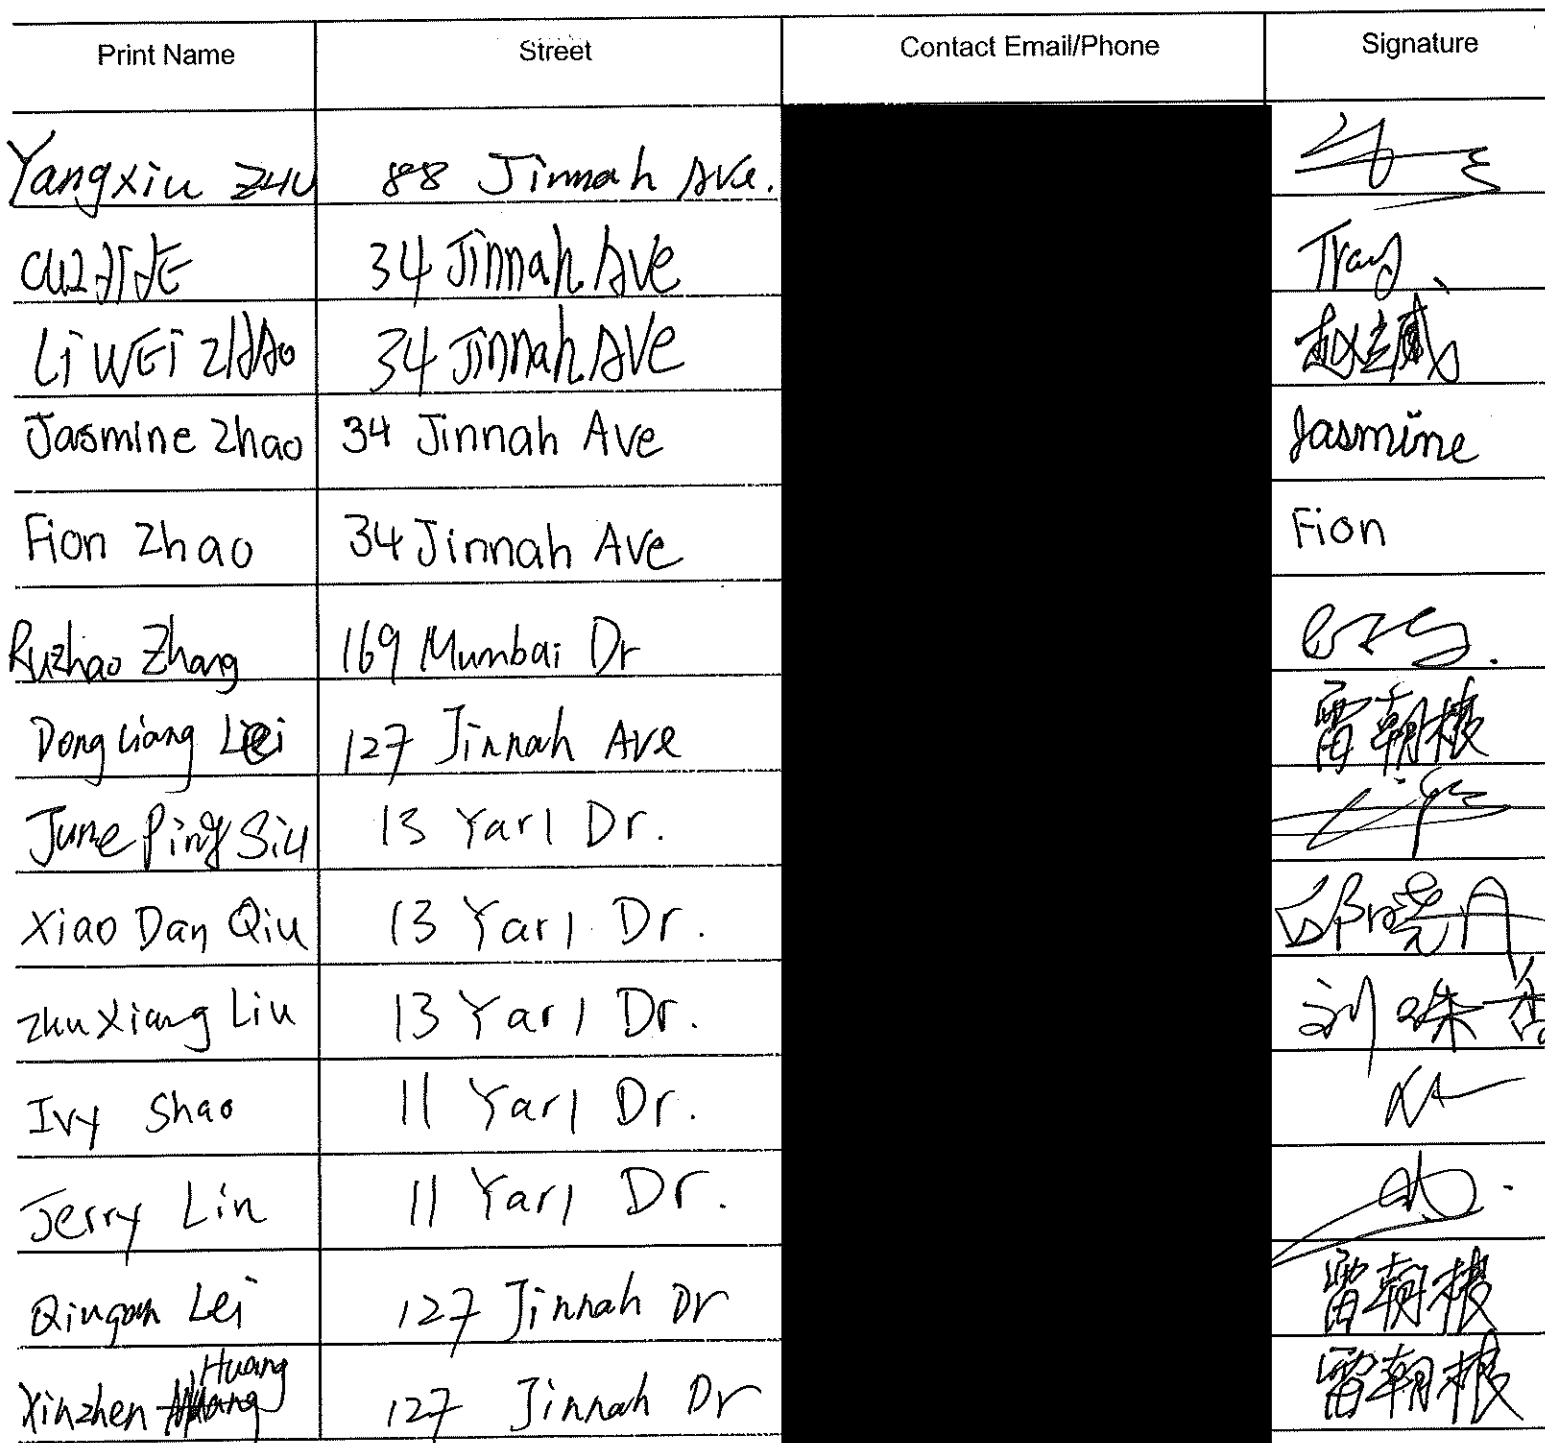 Print Name Street Contact Email/Phone Signature
Yangxiu ZHU 88 Jinnah Ave.
34 Jinnah Ave Tracy
Li WEi ZHAo 34 Jinnah Ave 赵立威
Jasmine Zhao 34 Jinnah Ave Jasmine
Fion Zhao 34 Jinnah Ave Fion
Ruzhao Zhang 169 Mumbai Dr
Dong Liang Lei 127 Jinnah Ave 雷朝根
June Ping Siu 13 Yarl Dr.
Xiao Dan Qiu 13 Yarl Dr. 邱晓丹
Zhu Xiang Liu 13 Yarl Dr. 刘珠香
Ivy Shao 11 Yarl Dr.
Jerry Lin 11 Yarl Dr.
Lei 127 Jinnah Dr 雷朝根
Xinzhen Huang 127 Jinnah Dr 雷朝根